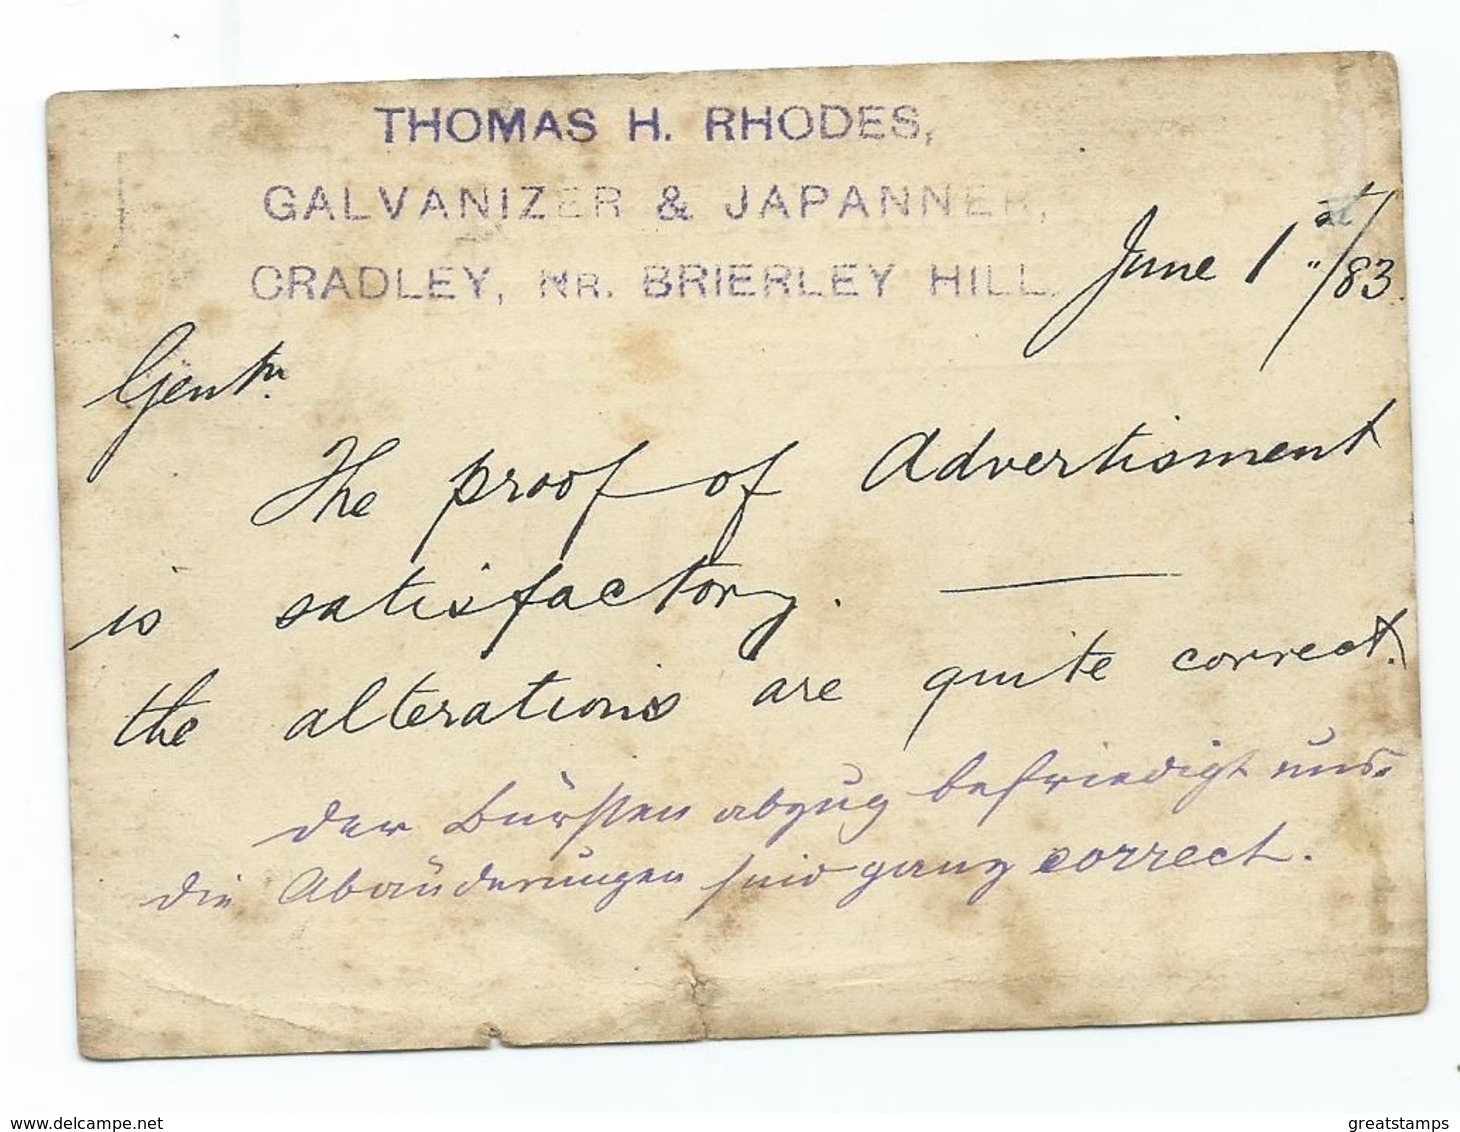 THOMAS H. RHODES,
GALVANIZER & JAPANNER,
CRADLEY, NR. BRIERLEY HILL.
June 1st/83
Gentn
The proof of Advertisment
is satisfactory. —
the alterations are quite correct.
der Bürsten abzug befriedigt uns.
die Abänderungen sind ganz correct.
www.delcampe.net
greatstamps